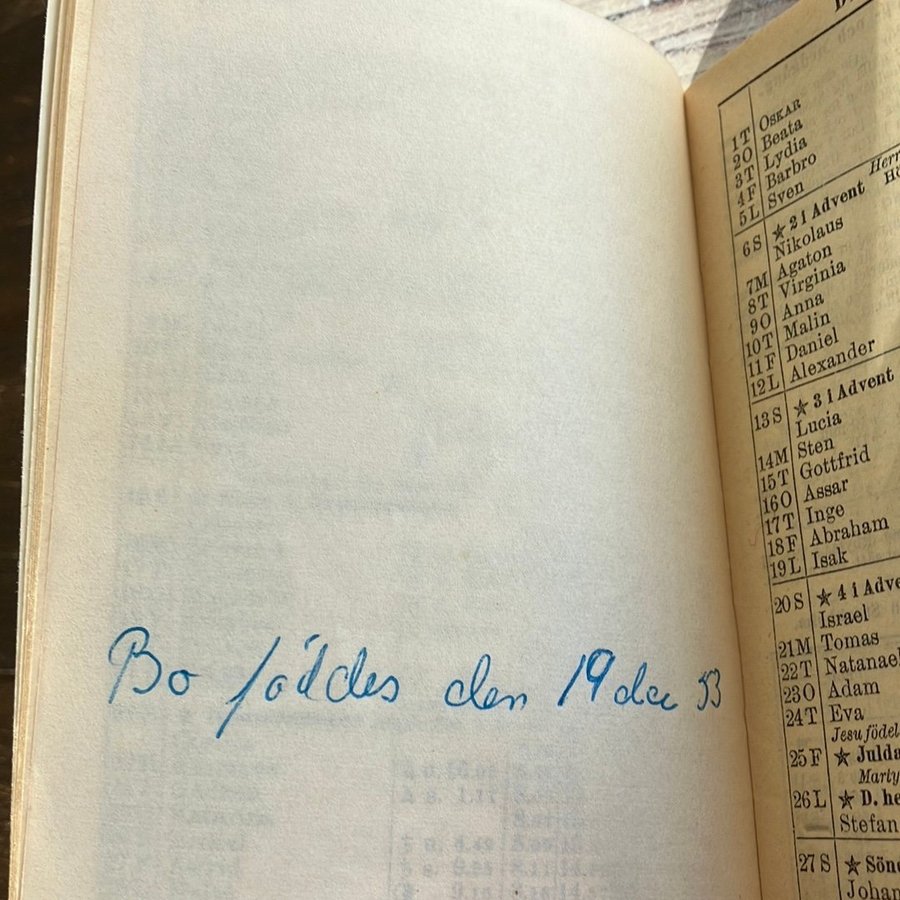 Bo föddes den 19 dec 53
1 T OSKAR
2 O Beata
3 T Lydia
4 F Barbro
5 L Sven
6 S ★ 2 i Advent
Nikolaus
7 M Agaton
8 T Virginia
9 O Anna
10 T Malin
11 F Daniel
12 L Alexander
13 S ★ 3 i Advent
Lucia
14 M Sten
15 T Gottfrid
16 O Assar
17 T Inge
18 F Abraham
19 L Isak
20 S ★ 4 i Adve
Israel
21 M Tomas
22 T Natanael
23 O Adam
24 T Eva
Jesu födel
25 F ★ Julda
Marty
26 L ★ D. he
Stefan
27 S ★ Sön
Johan